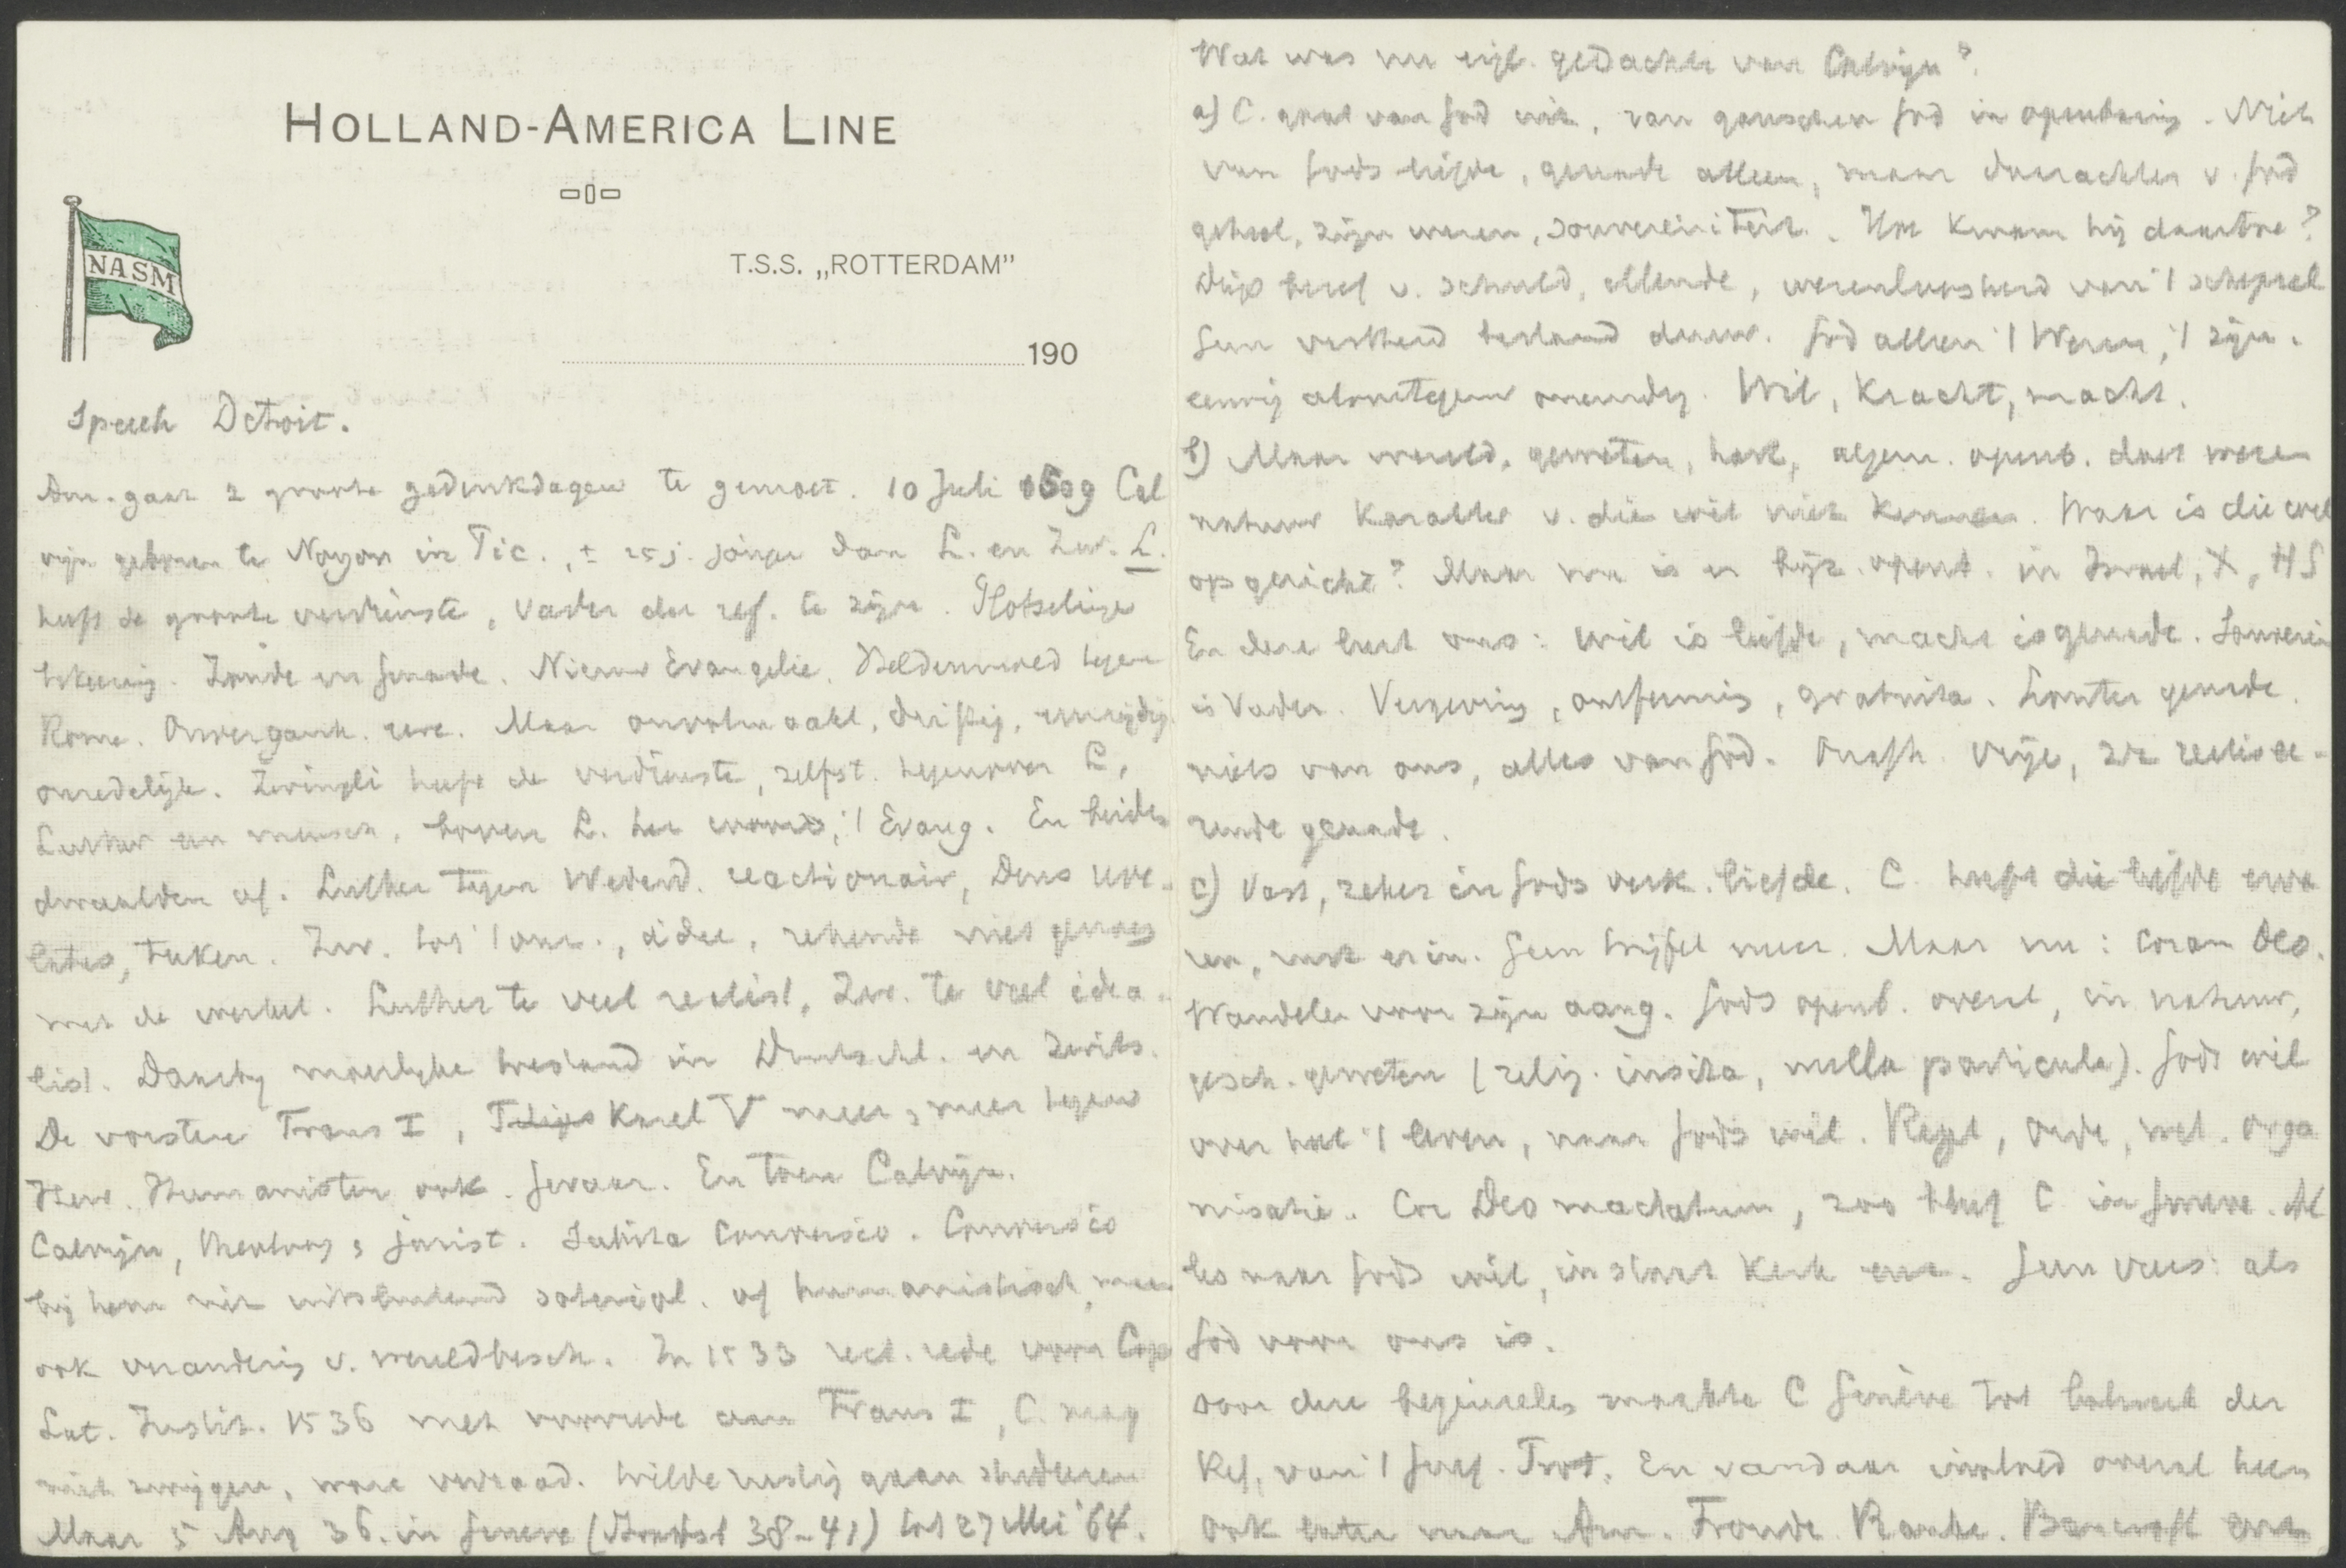 HOLLAND-AMERICA LINE
NASM
T.S.S. „ROTTERDAM”
190
Speech Detroit.
Am. gaat 2 groote gedenkdagen te gemoet. 10 Juli 1509 Cal
vijn geboren te Noyon in Pic., ± 25 j. jonger dan L. en Zw. L.
heeft de groote verdienste, Vader der ref. te zijn. Plotselinge
bekeering. Zonde en genade. Nieuw Evangelie. Heldenmoed tegen
Rome. Onvergank. eere. Maar onvolmaakt, driftig,
onredelijk. Zwingli heeft de verdienste, zelfst. tegenover L,
Luther een mensch, boven L. het woord, 't Evang. En beiden
dwaalden af. Luther tegen Wederd. reactionair, Deus
teeken. Zw. tot 't, idee, rekende niet genoeg
met de werkel. Luther te veel realist, Zw. te veel idea-
list. Daarbij moeilijke toestand in Duitschl. en Zwits.
De vorsten Frans I, Karel V meer & meer tegen
Herv. Humanisten ook. Gevaar. En toen Calvijn.
Calvijn, theoloog & jurist. Subita Conversio. Conversio
bij hem niet uitsluitend soteriol. of humanistisch, maar
ook verandering v. wereldbesch. In 1533 rect. rede voor Cop
Lat. Instit. 1536 met voorrede aan Frans I, C. mag
niet zwijgen, ware verraad. Wilde rustig gaan studeeren
Maar 5 Aug 36. in Geneve (38-41) tot 27 Mei '64.
Wat was nu eigl. gedachte van Calvijn?
a) C. gaat van God uit, van ganschen God in openbaring. Niet
van Gods liefde, genade alleen, maar daarachter v. God
geheel, zijn wezen, souvereiniteit. Hoe kwam hij daartoe?
Diep besef v. schuld, ellende, wezenloosheid van 't schepsel
Geen vastheid bestand duur. God alleen 't Wezen, 't zijn.
eeuwig alomtegenw oneindig. Wil, Kracht, macht.
b) Maar wereld, geweten, hart, algem. openb. doet wezen
natuur karakter v. die wil niet kennen. Waar is die wil
op gericht? Maar nu is er bijz. openb. in Israel, X, HS
En deze leert ons: wil is liefde, macht is genade. Souverein
is Vader. Vergeving, ontferming, gratuita. Louter genade.
niets van ons, alles van God. Onafh. vrije, zich realisee-
rende genade.
c) Vast, zeker in Gods verk. liefde. C. heeft die liefde erva
ren, rust erin. Geen twijfel meer. Maar nu: coram Deo.
Wandelen voor zijn aang. Gods openb. overal, in natuur,
gesch. geweten (relig. insita, nulla particula). Gods wil
over heel 't leven, naar Gods wil. Regel, orde, wet. Orga
nisatie. Cor Deo mactatum, zoo bleef C in Geneve. Al
les naar Gods wil, in staat kerk enz. Geen vrees: als
God voor ons is.
Door deze beginselen maakte C Genève tot bolwerk der
Ref, van 't Geref. Prot. En vandaar invloed overal heen
ook later naar Am. Froude. Ranke. Bancroft enz